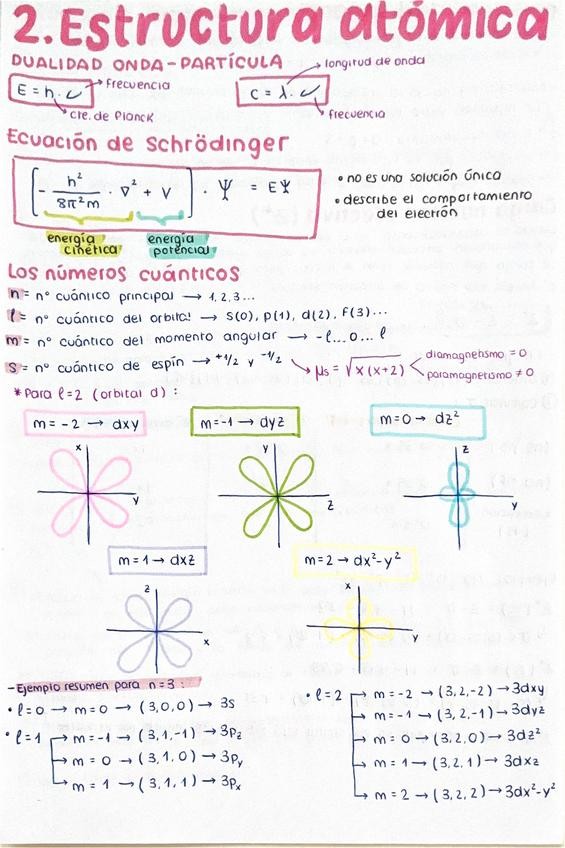 2. Estructura atómica
DUALIDAD ONDA-PARTÍCULA
E = h · ν → frecuencia
cte. de Planck
c = λ · ν
longitud de onda
frecuencia
Ecuación de Schrödinger
[ - h² / 8π²m · ∇² + V ] · Ψ = EΨ
energía cinética
energía potencial
• no es una solución única
• describe el comportamiento
del electrón
Los números cuánticos
n = nº cuántico principal → 1, 2, 3...
l = nº cuántico del orbital → s(0), p(1), d(2), f(3)...
m = nº cuántico del momento angular → -l...0...l
s = nº cuántico de espín → +1/2 y -1/2
μs = √x(x+2)
diamagnetismo = 0
paramagnetismo ≠ 0
* Para l=2 (orbital d) :
m = -2 → dxy
m = -1 → dyz
m = 0 → dz²
x
y
y
z
z
y
m = 1 → dxz
m = 2 → dx²-y²
z
x
x
y
- Ejemplo resumen para n = 3 :
• l=0 → m=0 → (3,0,0) → 3s
• l=1 → m=-1 → (3,1,-1) → 3pz
→ m = 0 → (3,1,0) → 3py
→ m = 1 → (3,1,1) → 3px
• l=2 → m=-2 → (3,2,-2) → 3dxy
→ m=-1 → (3,2,-1) → 3dyz
→ m=0 → (3,2,0) → 3dz²
→ m=1 → (3,2,1) → 3dxz
→ m=2 → (3,2,2) → 3dx²-y²